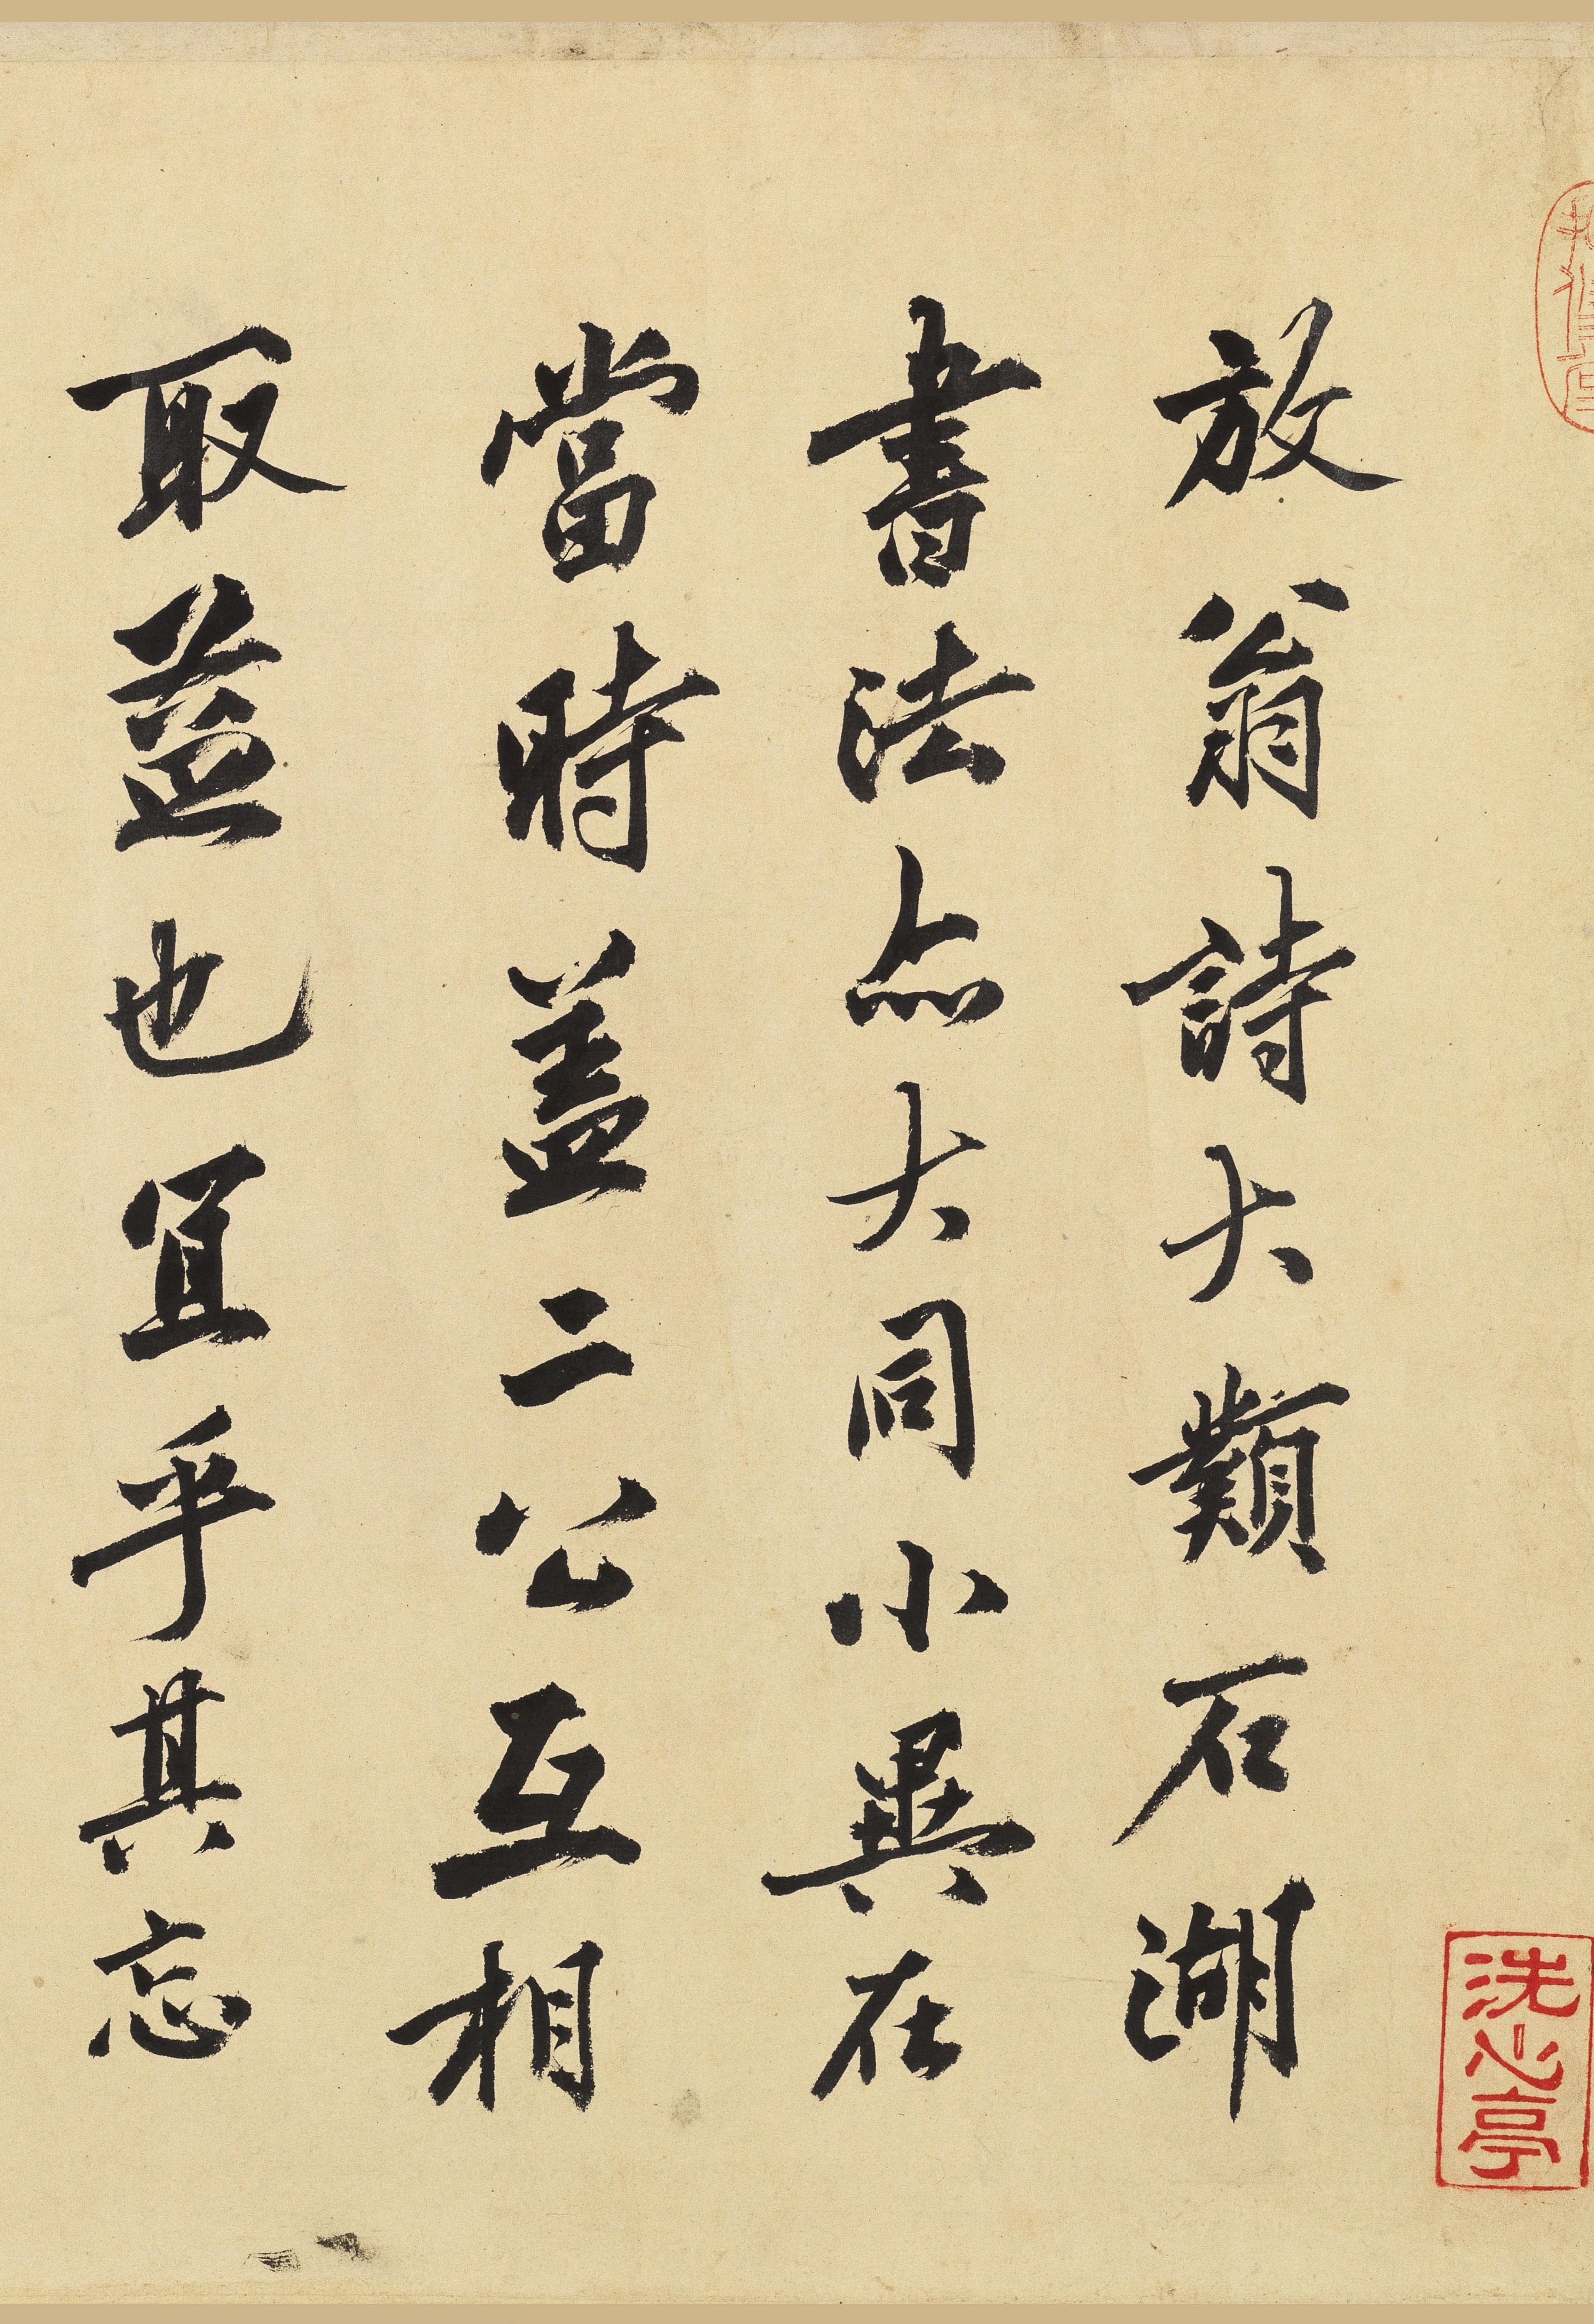 放翁詩大類石湖
書法亦大同小異在
當時蓋二公互相
取益也宜乎其忘
洗心亭